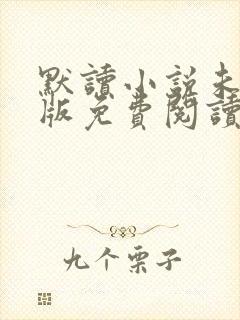 默讀小說未
版免費閱讀
九个栗子